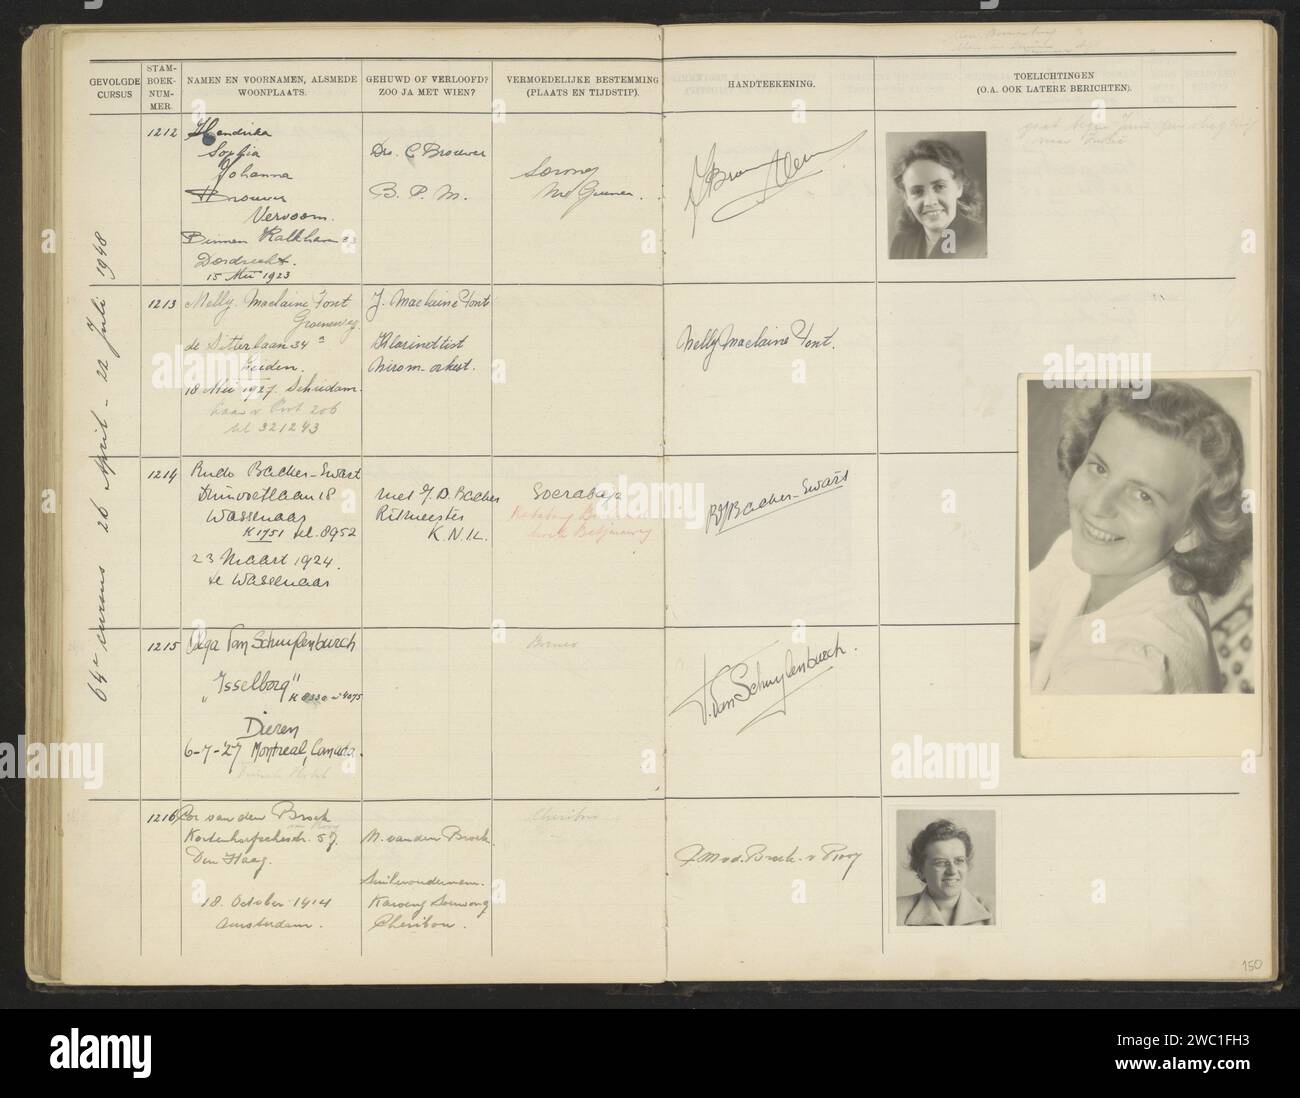 GEVOLGDE CURSUS
STAM-BOEK-NUM-MER.
NAMEN EN VOORNAMEN, ALSMEDE WOONPLAATS.
GEHUWD OF VERLOOFD? ZOO JA MET WIEN?
VERMOEDELIJKE BESTEMMING (PLAATS EN TIJDSTIP).
HANDTEEKENING.
TOELICHTINGEN
(O.A. OOK LATERE BERICHTEN).
64e cursus 26 April - 22 Juli 1948
1212
Hendrika
Sophia
Johanna
Brouwer
Vervoorn.
Binnen Kalkhaven 23
Dordrecht.
15 Mei 1923
Drs. C Brouwer
B. P. M.
Sorong
Nw Guinea.
naar Indië
1213
Nelly Maclaine Pont
Groeneweg.
de Sitterlaan 34a
Leiden.
18 Mei 1927. Schiedam.
Laan v Poot 206
tel 321243
J. Maclaine Pont
Klarinettist
Nirom-orkest.
Nelly Maclaine Pont.
1214
Rudo Backer-Swart
Duinvoetlaan 18
Wassenaar
K 1751 tel. 8952
23 Maart 1924.
te Wassenaar
met J. D. Backer
Ritmeester
K.N.I.L.
Soerabaja
RJBacker-Swart
1215
Olga Van Schuylenburch
"Ysselborg"
Dieren
6-7-'27 Montreal, Canada.
Borneo
V. van Schuylenburch.
1216
Cor van den Broek
van Rooy
57.
Den Haag.
18 October 1914
Amsterdam.
M. van den Broek.
Suikerondernem.
Karang Soewong
Cheribon.
Cheribon
v.d. Broek - v Rooy
150
alamy
Image ID: 2WC1FH3
www.alamy.com